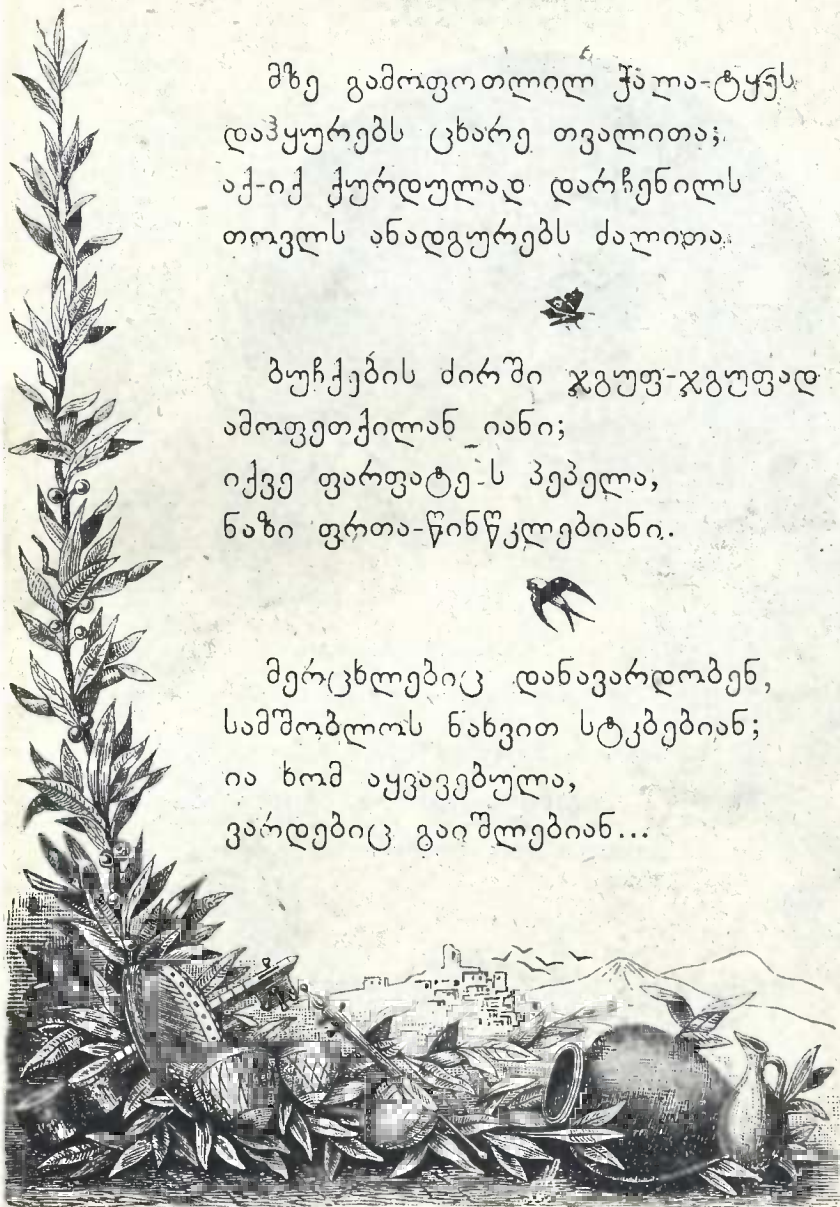 მზე გამოფოთლილ ჭალა-ტყეს
დაჰყურებს ცხარე თვალითა;
აქ-იქ ქურდულად დარჩენილს
თოვლს ანადგურებს ძალითა.
ბუჩქების ძირში ჯგუფ-ჯგუფად
ამოფეთქილან იანი;
იქვე ფარფატებს პეპელა,
ნაზი ფრთა-წინწკლებიანი.
მერცხლებიც დანავარდობენ,
სამშობლოს ნახვით სტკბებიან;
ია ხომ აყვავებულა,
ვარდებიც გაიშლებიან...